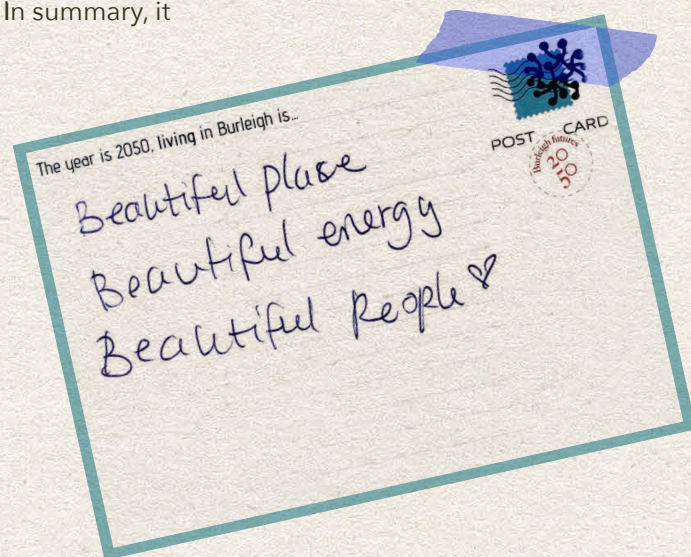 In summary, it
The year is 2050, living in Burleigh is...
POST CARD
Burleigh futures
2050
Beautiful place
Beautiful energy
Beautiful People ♡